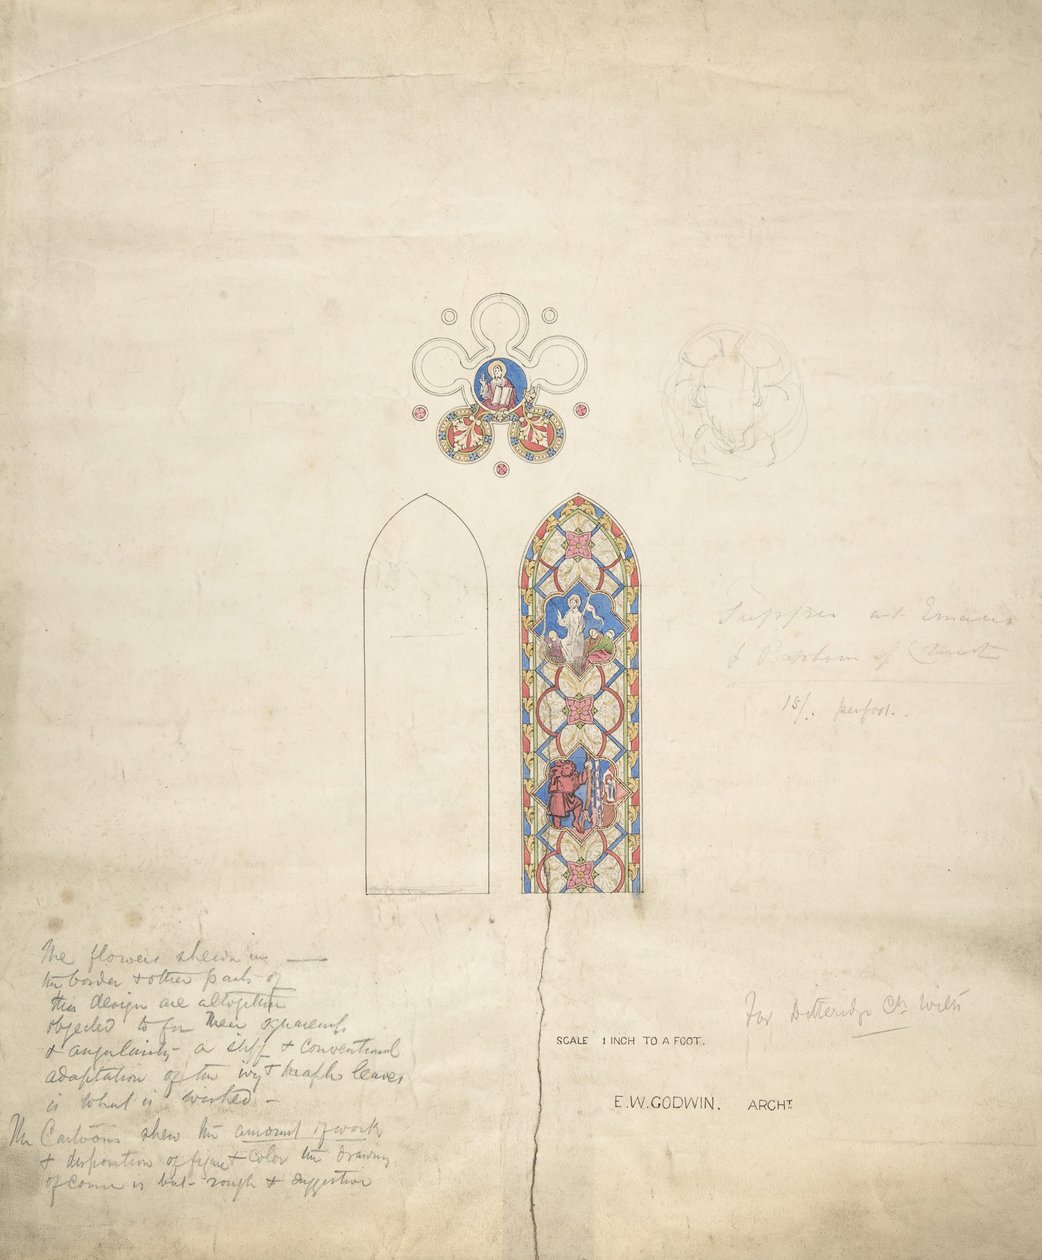 Supper at Emaus
& Baptism of Christ
15/. per foot.
The flowers shewn in
the border & other parts of
this design are altogether
objected to for their squareness
& angularity - a stiff & conventional
adaptation of the ivy & maple leaves
is what is wished -
The Cartoons shew the amount of work
& disposition of figure & color the drawing
of course is but rough & suggestive
For Ditteridge Ch. Wilts
SCALE 1 INCH TO A FOOT.
E.W.GODWIN. ARCHT